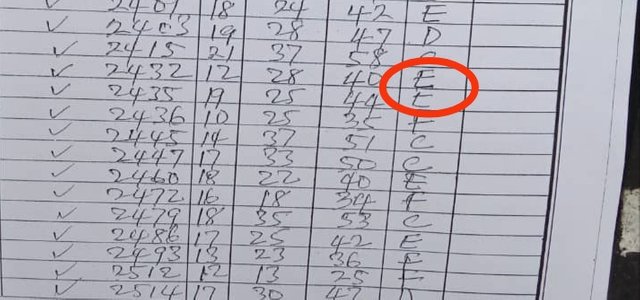 2401 18 24 42 E
2403 19 28 47 D
2415 21 37 58 C
2432 12 28 40 E
2435 19 25 44 E
2436 10 25 35 F
2445 14 37 51 C
2447 17 33 50 C
2460 18 22 40 E
2472 16 18 34 F
2479 18 35 53 C
2486 17 25 42 E
2493 13 23 36 F
2512 12 13 25 F
2514 17 30 47 D